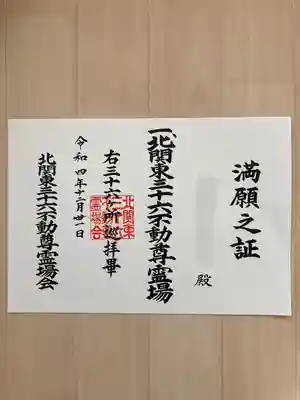 満願之証
殿
一、北関東三十六不動尊霊場
右三十六ヶ所巡拝畢
令和四年十二月卅一日
北関東三十六不動尊霊場会